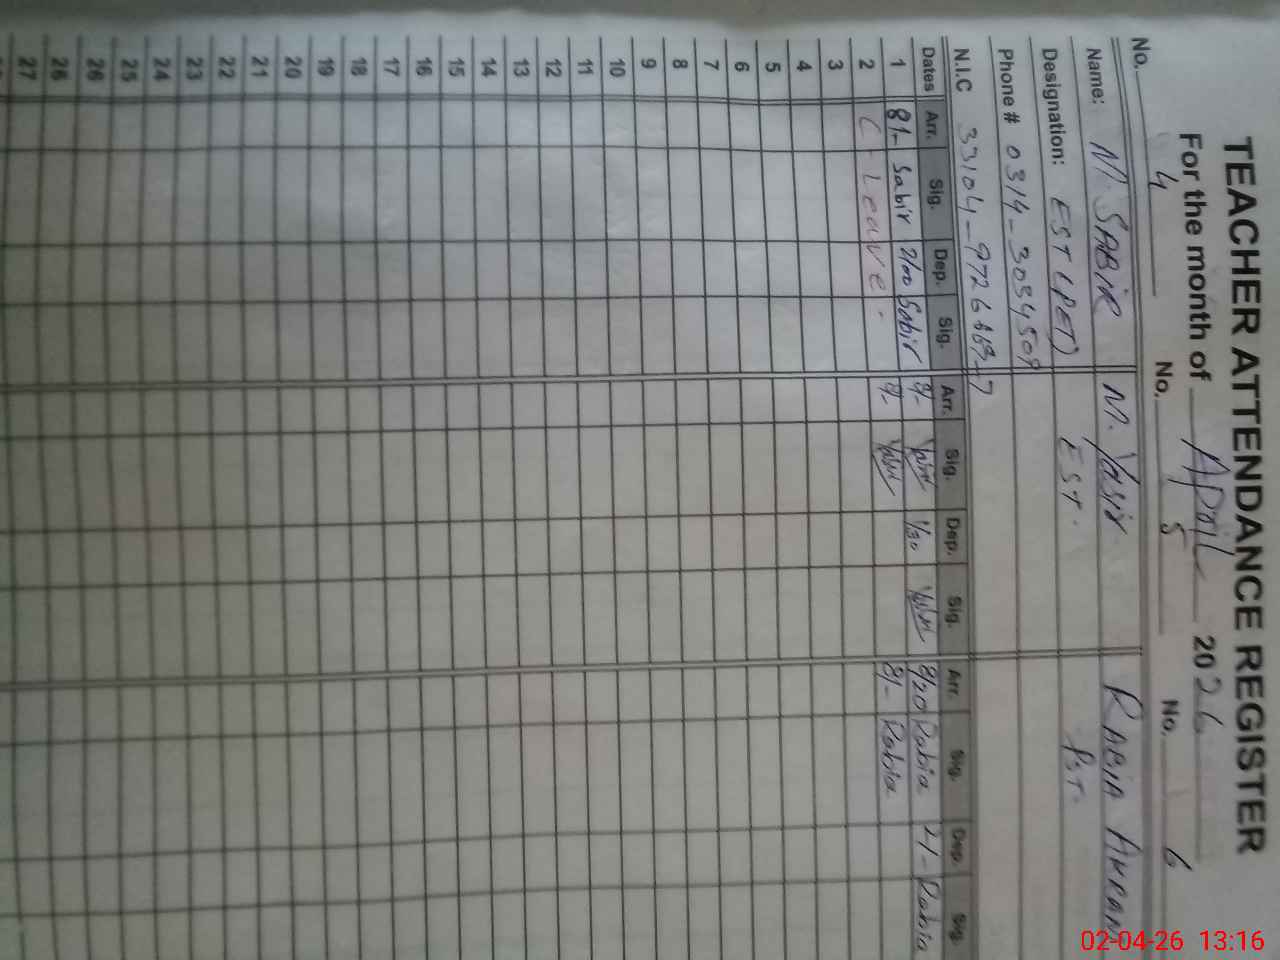 TEACHER ATTENDANCE REGISTER
For the month of April 2026
No. 4 No. 5 No. 6
Name: M. SABIR M. Yasir RABIA AKRAM
Designation: EST (PET) EST. PST.
Phone # 0314-3054509
N.I.C 33104-9726669-7
Dates Arr. Sig. Dep. Sig. Arr. Sig. Dep. Sig. Arr. Sig. Dep. Sig.
1 8/- Sabir 2/00 Sabir 8/- Yasir 1/30 Yasir 8/20 Rabia 2/- Rabia
2 C-Leave. 8/- Yasir 8/- Rabia
3
4
5
6
7
8
9
10
11
12
13
14
15
16
17
18
19
20
21
22
23
24
25
26
26
27
02-04-26 13:16